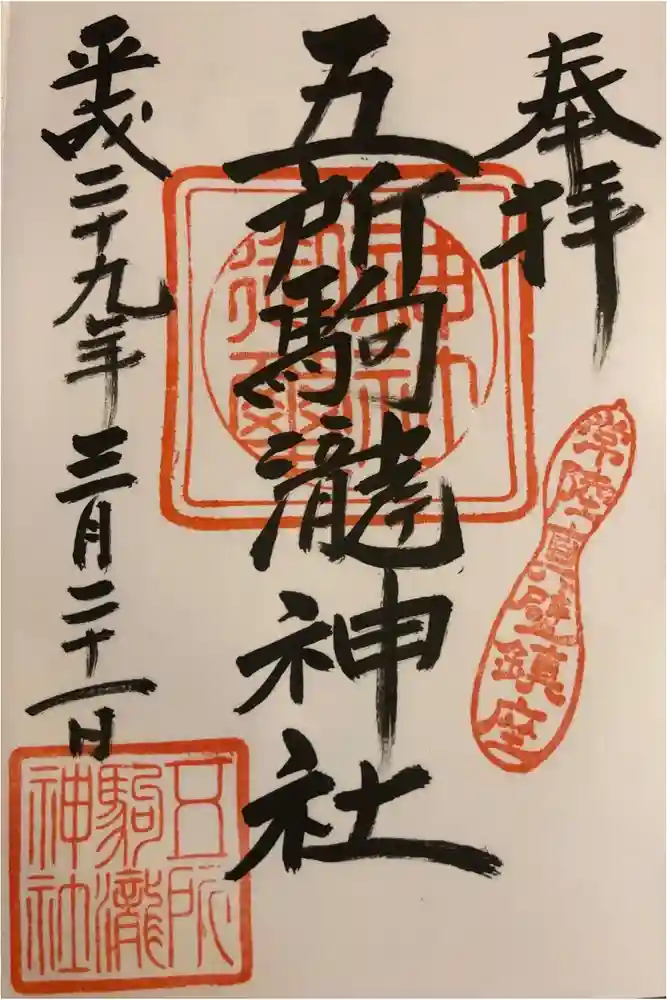 奉拝
常陸真壁鎮座
五所駒瀧神社
神社
御璽
平成二十九年三月二十一日
五所
駒瀧
神社